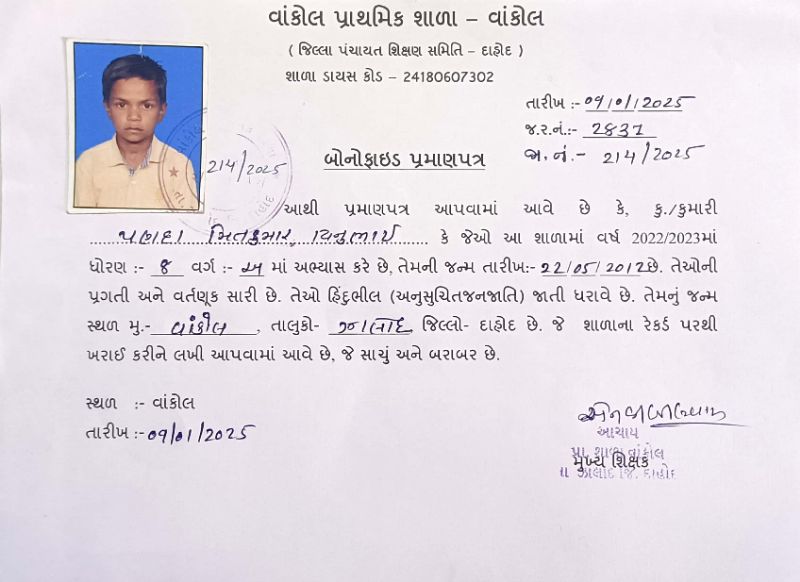 વાંકોલ પ્રાથમિક શાળા – વાંકોલ
( જિલ્લા પંચાયત શિક્ષણ સમિતિ – દાહોદ )
શાળા ડાયસ કોડ – 24180607302
તારીખ :- 09/01/2025
જ.ર.નં.:- 2837
જા.નં.- 214/2025
214/2025
બોનોફાઇડ પ્રમાણપત્ર
આથી પ્રમાણપત્ર આપવામાં આવે છે કે, કુ./કુમારી
પણદા મિતકુમાર વિનુભાઈ કે જેઓ આ શાળામાં વર્ષ 2022/2023માં
ધોરણ :- 8 વર્ગ :- અ માં અભ્યાસ કરે છે, તેમની જન્મ તારીખ:- 22/05/2012છે. તેઓની
પ્રગતી અને વર્તણૂક સારી છે. તેઓ હિંદુભીલ (અનુસુચિતજનજાતિ) જાતી ધરાવે છે. તેમનું જન્મ
સ્થળ મુ.- વાંકોલ, તાલુકો- ઝાલોદ જિલ્લો- દાહોદ છે. જે શાળાના રેકર્ડ પરથી
ખરાઈ કરીને લખી આપવામાં આવે છે, જે સાચું અને બરાબર છે.
સ્થળ :- વાંકોલ
તારીખ :- 09/01/2025
આચાર્ય
પ્રા. શાળા વાંકોલ
મુખ્ય શિક્ષક
તા ઝાલોદ જિ. દાહોદ